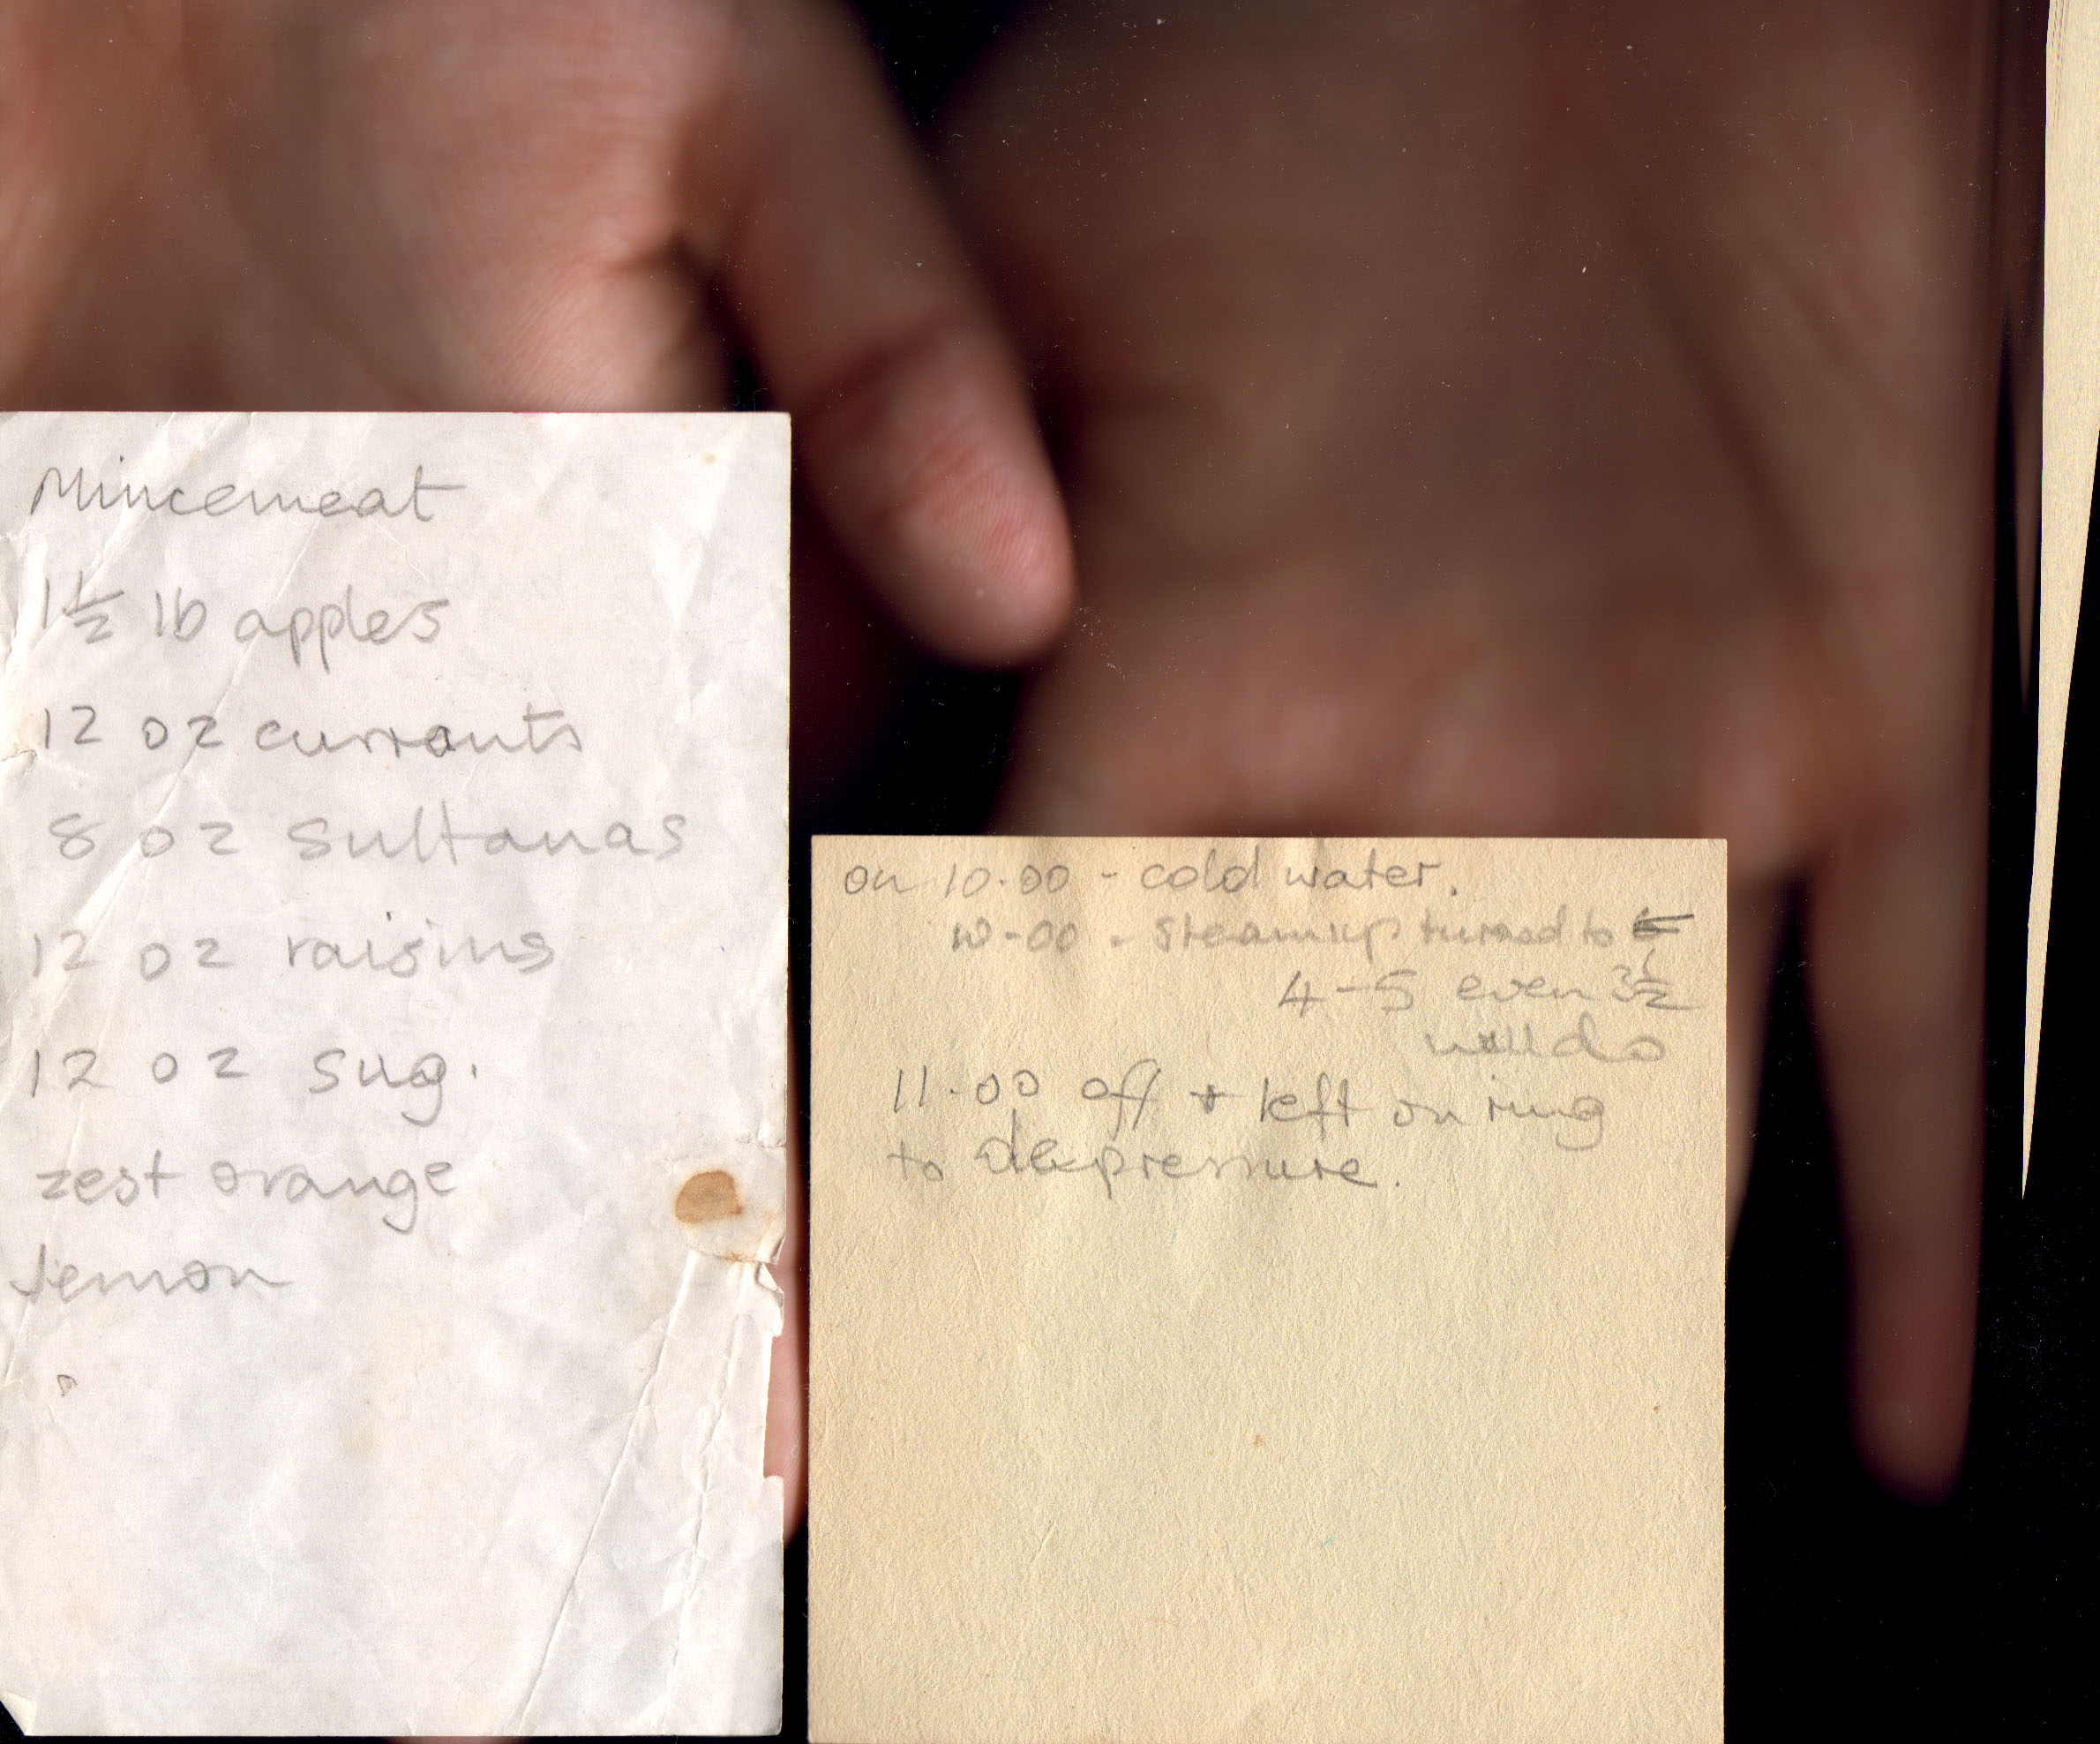 Mincemeat
1½ lb apples
12 oz currants
8 oz sultanas
12 oz raisins
12 oz sug.
zest orange
lemon
on 10.00 - cold water.
10-00 - steam up turned to
4-5 even 3½
will do
11.00 off + left on ring
to depressure.